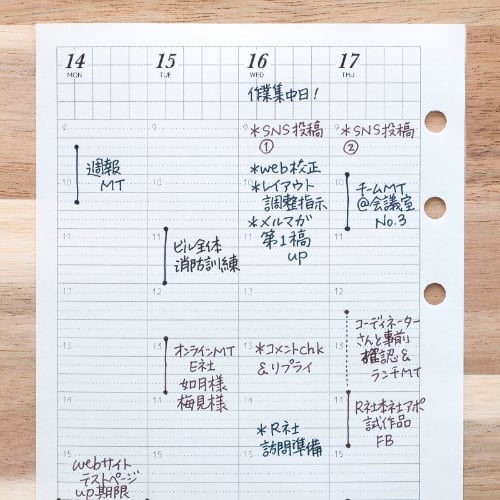 14
MON
15
TUE
16
WED
17
THU
作業集中日!
9
週報
MT
10
11
12
13
14
15
webサイト
テストページ
up期限
9
10
11
ビル全体
消防訓練
12
13
オンラインMT
E社
如月様
梅見様
14
15
9
*SNS投稿
①
*web校正
10
*レイアウト
調整指示
*メルマガ
第1稿
up
11
12
13
*コメントchk
&リプライ
14
*R社
訪問準備
15
9
*SNS投稿
②
10
チームMT
@会議室
No.3
11
12
13
コーディネーター
さんと事前
確認&
ランチMT
14
R社本社アポ
試作品
FB
15